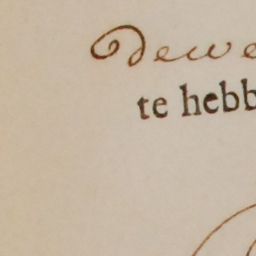 dewe
te hebb